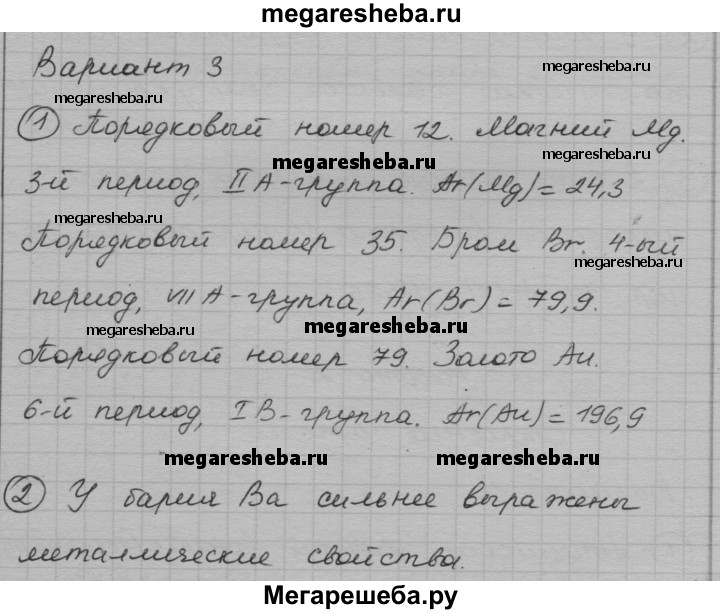 megaresheba.ru
Вариант 3
megaresheba.ru
megaresheba.ru
① Порядковый номер 12. Магний Mg.
megaresheba.ru
megaresheba.ru
3-й период, II А-группа. Ar(Mg)= 24,3
megaresheba.ru
Порядковый номер 35. Бром Br. 4-ый
megaresheba.ru
период, VII А-группа, Ar(Br)= 79,9.
megaresheba.ru
megaresheba.ru
Порядковый номер 79. Золото Au.
6-й период, I В-группа. Ar(Au)= 196,9
megaresheba.ru
megaresheba.ru
② У бария Ba сильнее выражены
металлические свойства.
Мегарешеба.ру